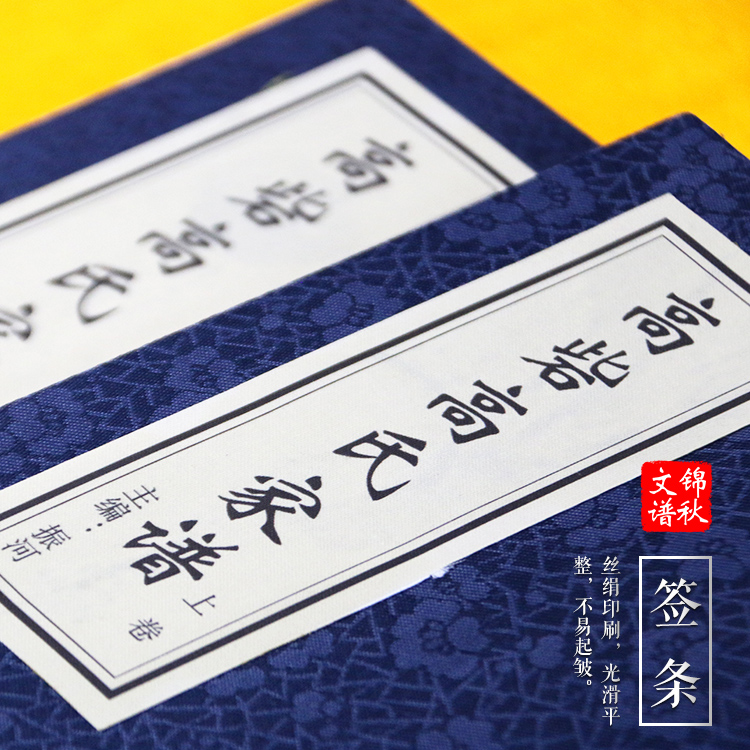 高砦高氏家
高砦高氏家谱
上卷
主编：振河
锦秋
文谱
签条
丝绢印刷，光滑平
整，不易起皱。